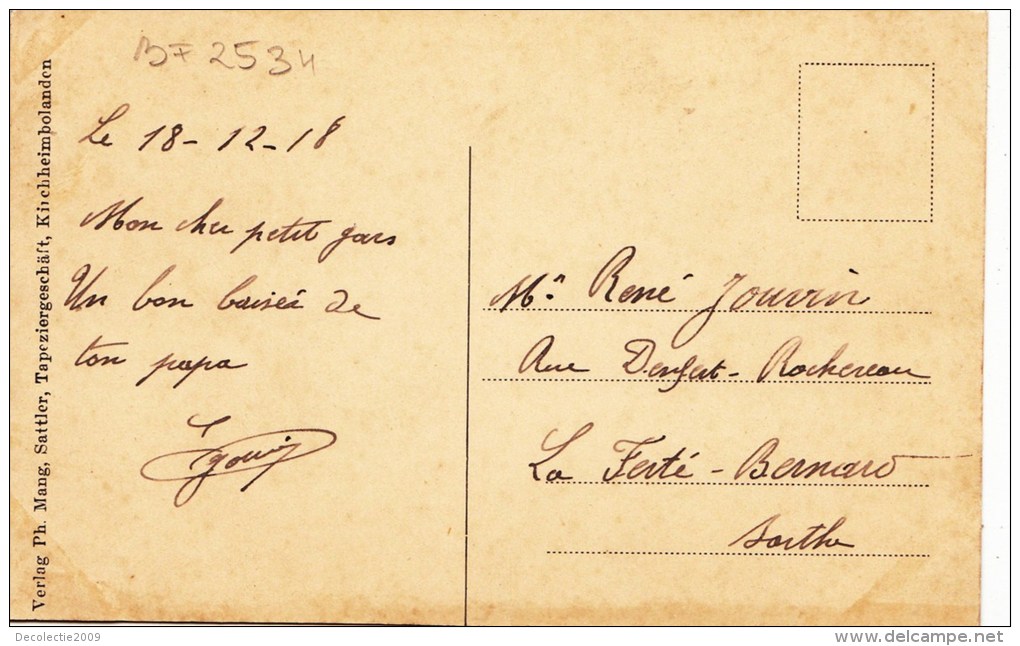 BF 2534
Le 18-12-18
Mon cher petit gars
Un bon baiser de
ton papa
Verlag Ph. Mang, Sattler, Tapeziergeschäft, Kirchheimbolanden
Mr. René Jouvin
Rue Denfert-Rochereau
La Ferté-Bernard
Sarthe
Decolectie2009
www.delcampe.net